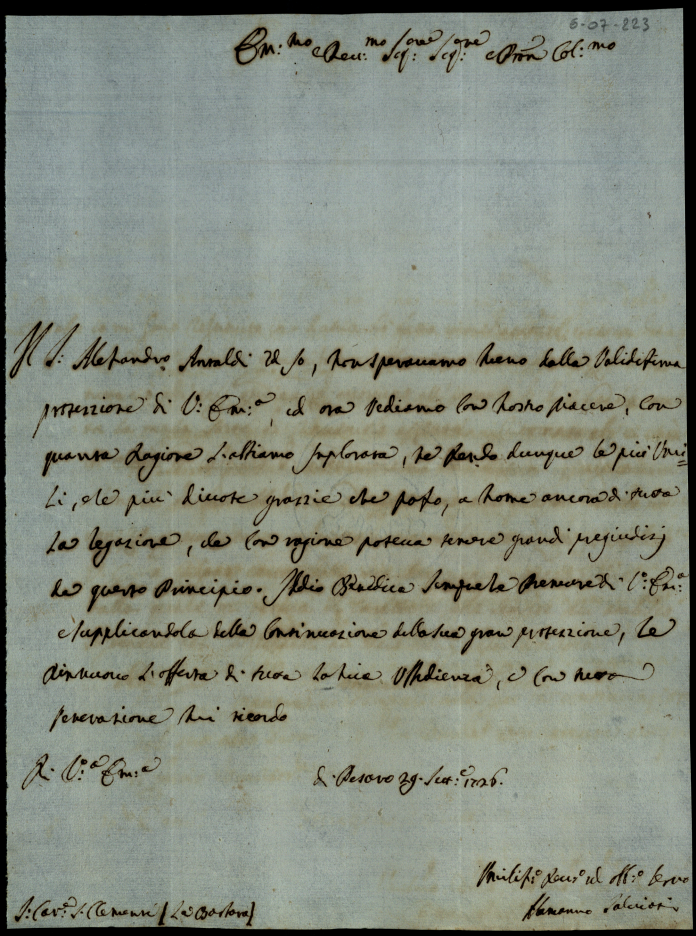 6-07-223
Em:mo e Rev:mo Sig:ore Sig:ore e Pron Col:mo
Il S: Alessandro Ansaldi è, non speravamo meno dalla Validissima
protezzione di V: Em:a, ed ora Vediamo Con nostro piacere, Con
quanta Ragione l'abbiamo Implorata, le Rendo dunque le più Umi=
li, e le più divote grazzie che posso, a nome ancora di tutta
La legazione, che Con ragione poteva temere grandi pregiudizj
da questo Principio. Iddio Benedica Sempre le Premure di V:a Em:a
e Supplicandola della Continuazione della sua gran protezzione, Le
Rinnuovo l'offerta di tutta La mia Ubbidienza, e Con tutta
venerazione mi ricordo
Di V:a Em:a
di Pesaro 29 Sett:e 1726.
Umiliss:o Dev:o ed Obb:o Servo
Alamanno Salviati
S: Car:e S: Clemente [La Bastara]